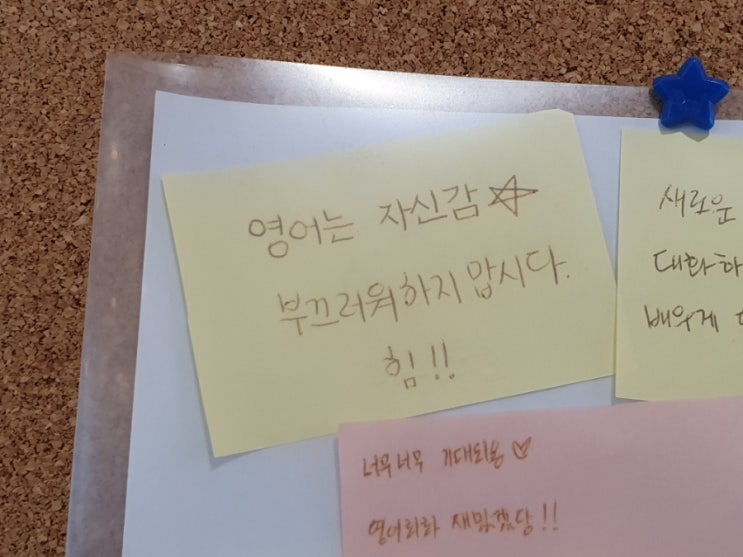 영어는 자신감☆
부끄러워하지 맙시다.
힘!!
새로운
대화하
배우게
너무너무 기대되용♡
영어회화 재밌겠당!!